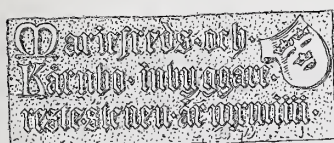 Mariefreds · och ·
Kärnbo · inbyggare ·
reste stenen · år mcmiii ·